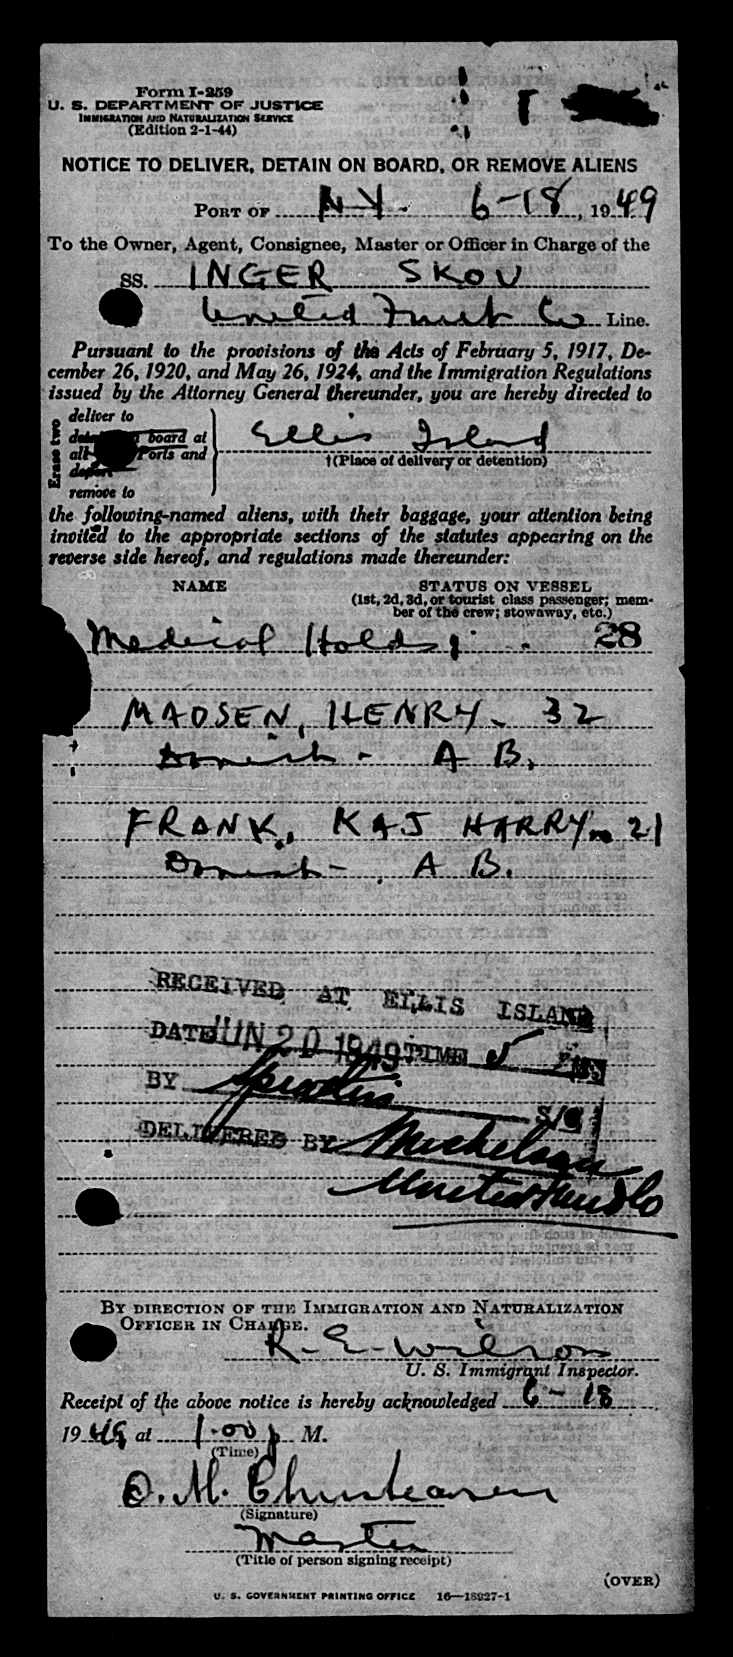 Form I-259
U. S. DEPARTMENT OF JUSTICE
IMMIGRATION AND NATURALIZATION SERVICE
(Edition 2-1-44)
NOTICE TO DELIVER, DETAIN ON BOARD, OR REMOVE ALIENS
PORT OF N.Y. 6-18, 1949
To the Owner, Agent, Consignee, Master or Officer in Charge of the
SS. INGER SKOU
United Fruit Co Line.
Pursuant to the provisions of the Acts of February 5, 1917, De-
cember 26, 1920, and May 26, 1924, and the Immigration Regulations
issued by the Attorney General thereunder, you are hereby directed to
Erase two
deliver to
board at
all Ports and
remove to
Ellis Island
†(Place of delivery or detention)
the following-named aliens, with their baggage, your attention being
invited to the appropriate sections of the statutes appearing on the
reverse side hereof, and regulations made thereunder:
NAME STATUS ON VESSEL
(1st, 2d, 3d, or tourist class passenger; mem-
ber of the crew; stowaway, etc.)
Medical Holds; 28
MADSEN, HENRY - 32
Danish - A B.
FRANK, KAJ HARRY - 21
Danish - A B.
RECEIVED AT ELLIS ISLAND
DATE JUN 20 1949 TIME 5
BY
DELIVERED BY
BY DIRECTION OF THE IMMIGRATION AND NATURALIZATION
OFFICER IN CHARGE.
R. E. Wilson
U. S. Immigrant Inspector.
Receipt of the above notice is hereby acknowledged 6-18
1949 at 1:00 p M.
(Time)
O. M. Christensen
(Signature)
Master
(Title of person signing receipt)
(OVER)
U. S. GOVERNMENT PRINTING OFFICE 16—18927-1